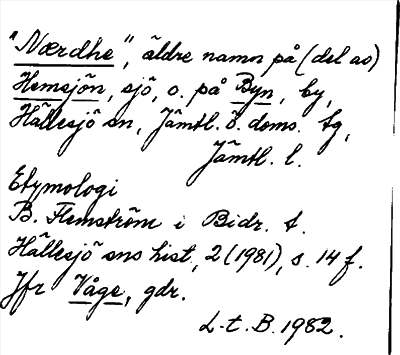 "Nærdhe", äldre namn på (del av)
Hemsjön, sjö, o. på Byn, by,
Hällesjö sn, Jämtl. ö. doms. tg,
Jämtl. l.
Etymologi
B. Flemström i Bidr. t.
Hällesjö sns hist., 2 (1981), s. 14 f.
Jfr Våge, gdr.
L-t. B. 1982.